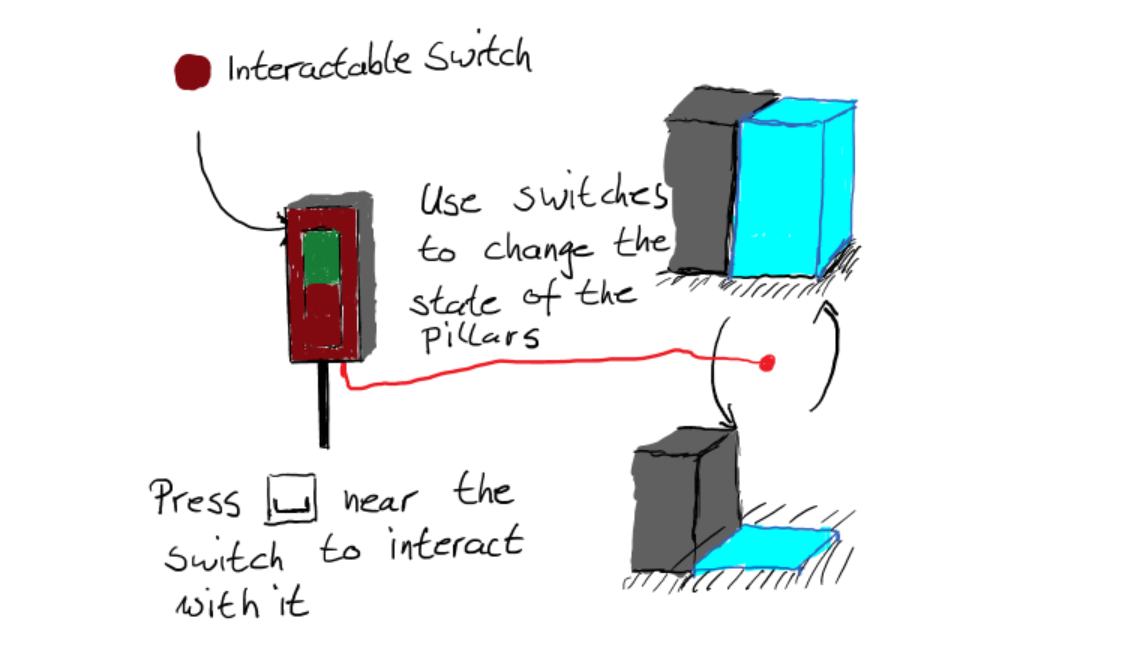 Interactable Switch
Use switches
to change the
state of the
pillars
Press near the
switch to interact
with it